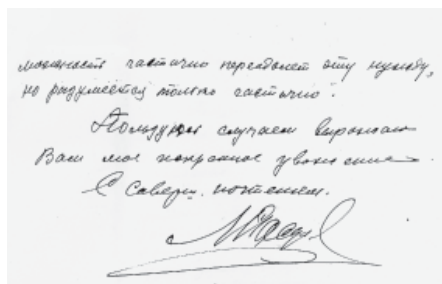 частично эту нужду,
но разумеется только частично.
Пользуюсь случаем выразить
Вам мое искреннее уважение
С соверш. почтением.